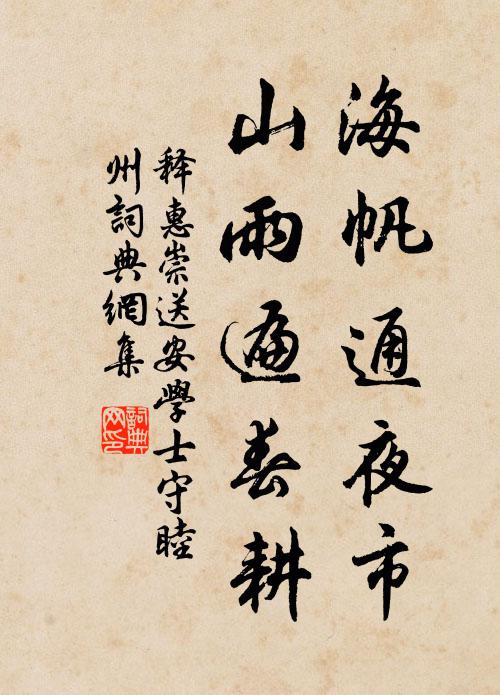 海帆通夜市
山雨遍春耕
释惠崇送安學士守睦
州詞典網集
詞典网印